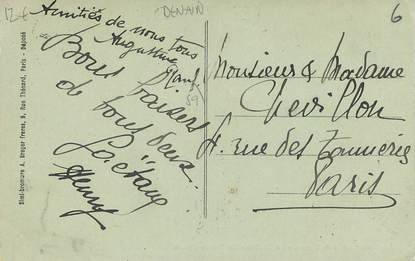 12 €
DENAIN
6
Amitiés de nous tous
Augustine
59
Bons baisers
de tous deux.
Gaëtane
Henry
Monsieur & Madame
Chevillon
4. rue des Tanneries
Paris
Simi-bromure A. Breger frères, 9, Rue Thénard, Paris - Déposé